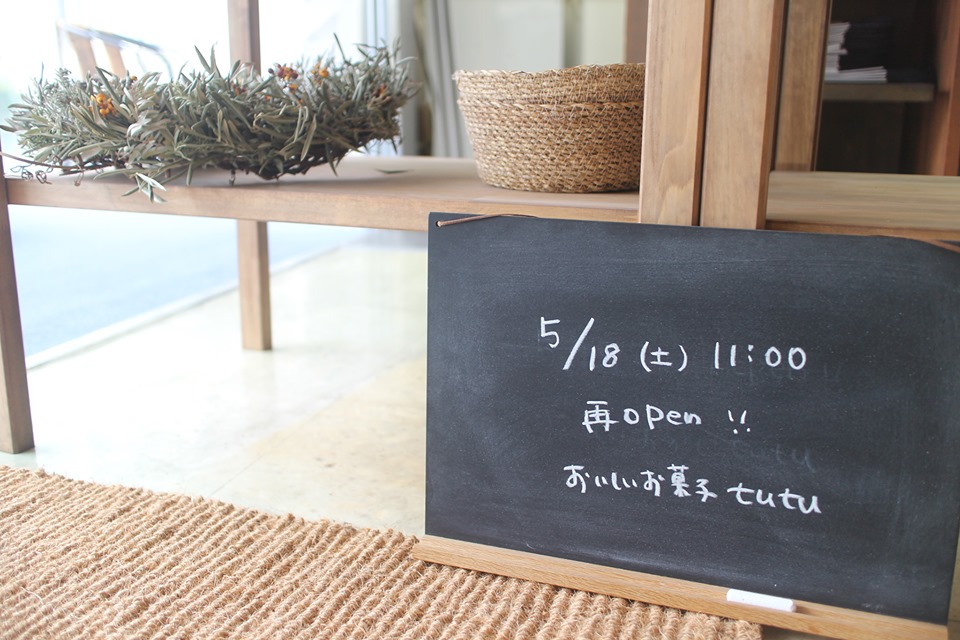 5/18 (土) 11:00
再open !!
おいしいお菓子 tutu